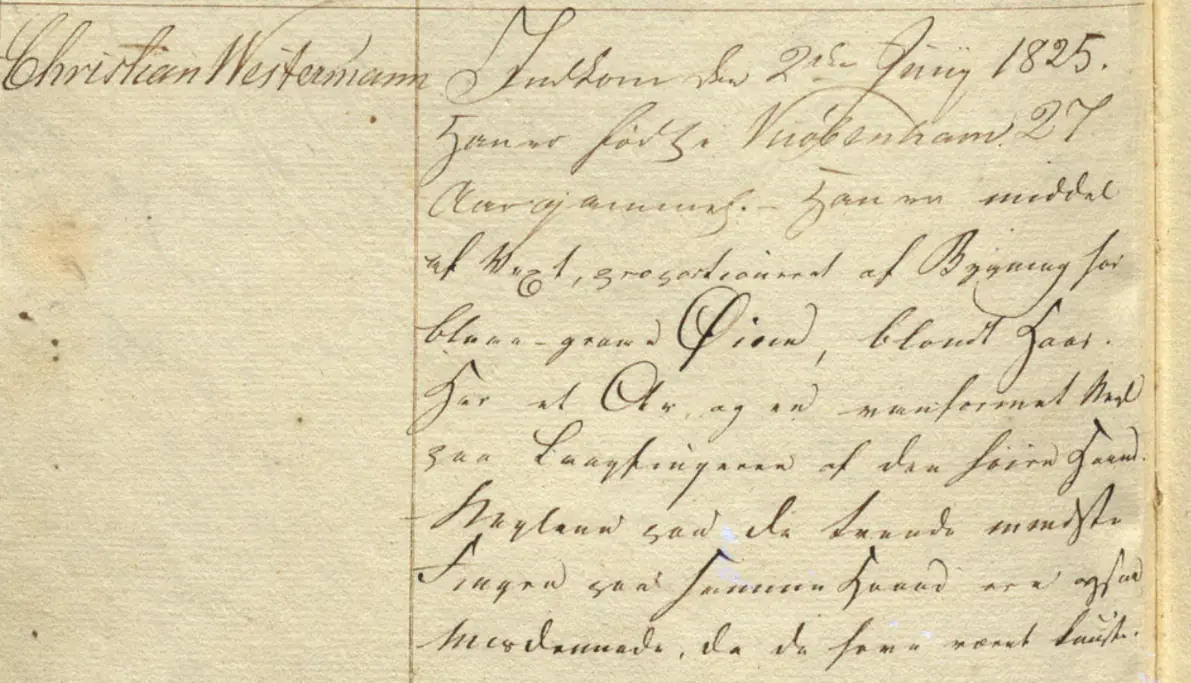 Christian Westermann
Indkom den 2den Juny 1825.
Han er født i Kiøbenhavn. 27
Aar gammel. - Han er middel
af Vext, proportioneret af Bygning har
blaae-graae Øine, blondt Haar.
Har et Ar og en vanformet Negl
paa Langfingeren af den høire Haand.
Neglene paa de tvende mindste
Fingre paa samme Haand ere ogsaa
misdannede, da de have været